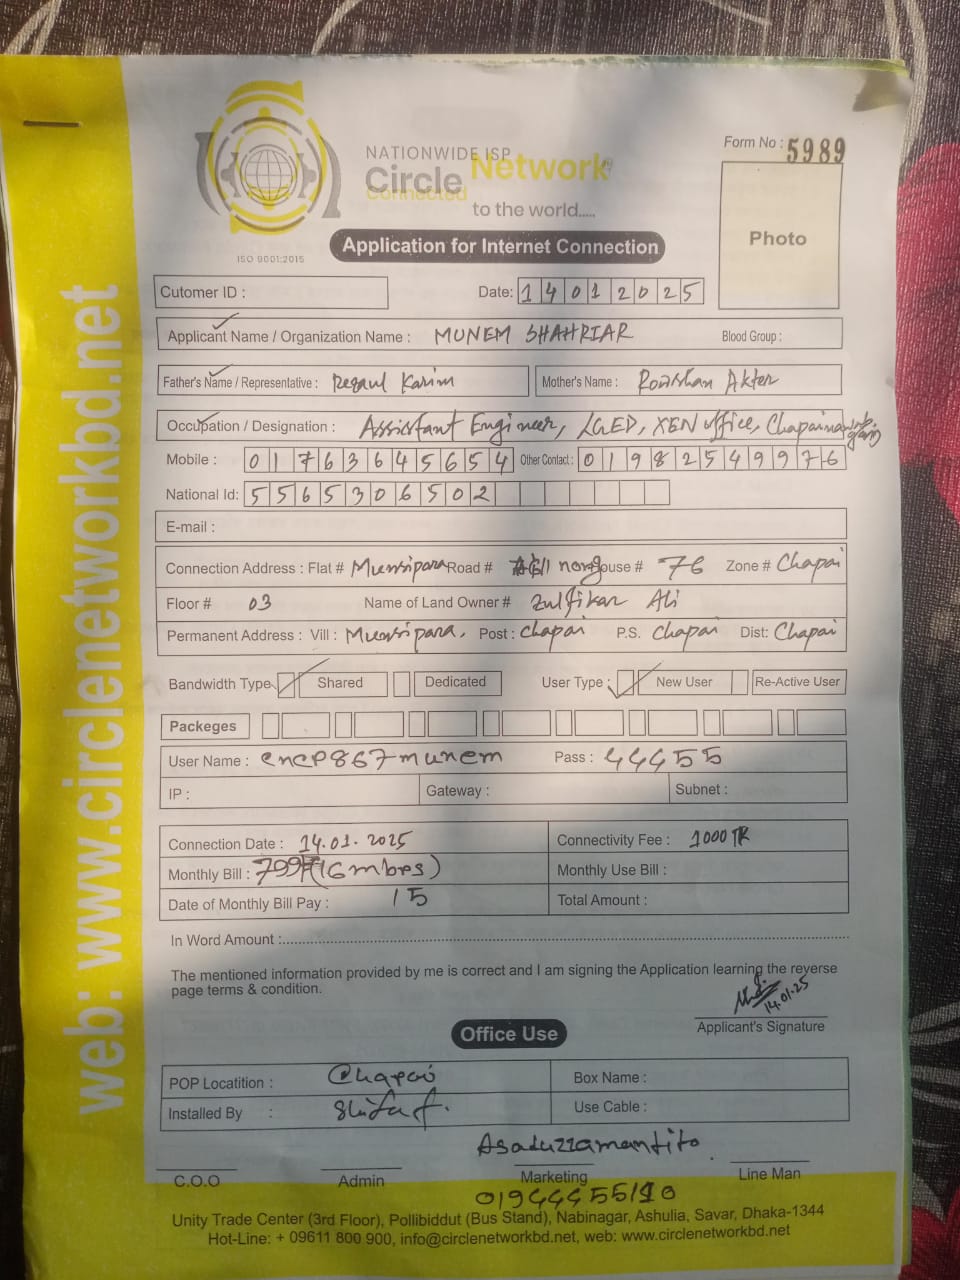 NATIONWIDE ISP
Circle Network
Connected
to the world.....
ISO 9001:2015
Form No : 5989
Photo
Application for Internet Connection
Cutomer ID :
Date: 14012025
Applicant Name / Organization Name : MUNEM SHAHRIAR Blood Group :
Father's Name / Representative : Rezaul Karim Mother's Name : Rowshan Akter
Occupation / Designation : Assistant Engineer, LGED, XEN office, Chapainawabganj
Mobile : 01763645654 Other Contact : 01982549976
National Id: 5565306502
E-mail :
Connection Address : Flat # Munsipara Road # House # 76 Zone # Chapai
Floor # 03 Name of Land Owner # Zulfikar Ali
Permanent Address : Vill : Munsipara, Post : Chapai P.S. Chapai Dist: Chapai
Bandwidth Type Shared Dedicated User Type : New User Re-Active User
Packeges
User Name : cncp867munem Pass : 44455
IP : Gateway : Subnet :
Connection Date : 14.01.2025 Connectivity Fee : 1000 TK
Monthly Bill : (16mbps) Monthly Use Bill :
Date of Monthly Bill Pay : 15 Total Amount :
In Word Amount :
The mentioned information provided by me is correct and I am signing the Application learning the reverse
page terms & condition.
14.01.25
Applicant's Signature
Office Use
POP Locatition : Chapai Box Name :
Installed By : Use Cable :
Asaduzzamantito
C.O.O Admin Marketing Line Man
Unity Trade Center (3rd Floor), Pollibiddut (Bus Stand), Nabinagar, Ashulia, Savar, Dhaka-1344
Hot-Line: + 09611 800 900, info@circlenetworkbd.net, web: www.circlenetworkbd.net
web: www.circlenetworkbd.net